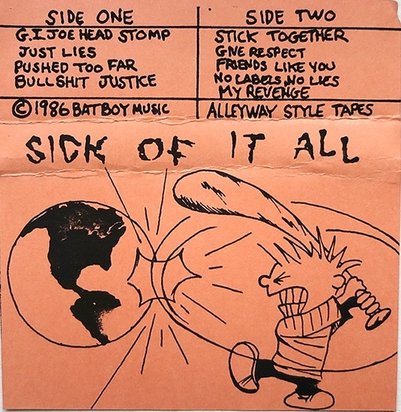 SIDE ONE
G.I. JOE HEAD STOMP
JUST LIES
PUSHED TOO FAR
BULLSHIT JUSTICE
©1986 BATBOY MUSIC
SIDE TWO
STICK TOGETHER
GIVE RESPECT
FRIENDS LIKE YOU
NO LABELS, NO LIES
MY REVENGE
ALLEYWAY STYLE TAPES
SICK OF IT ALL